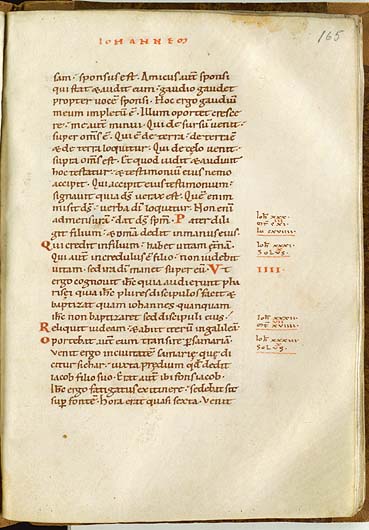 IOHANNES
165
sam · sponsus est · Amicus aut̄ sponsi
qui stat & audit eum · gaudio gaudet
propter vocē sponsi · Hoc ergo gaudiū
meum impletū ē · Illum oportet cresce
re · me aut̄ minui · Qui de sursū venit ·
super om̄s ē · Qui ē de terra · de terra ē
& de terra loquitur · Qui de cęlo venit ·
supra om̄s est · Et quod vidit & audivit
hoc testatur · & testimoniū eius nemo
accipit · Qui accipit eius testimonium ·
signavit quia d̄s verax est · Quē enim
misit d̄s · verba dī loquitur · Non enī
ad mensurā · dat d̄s sp̄m · Pater dili
git filium · & om̄a dedit in manu eius ·
Qui credit in filium · habet vitam ęt̄nā ·
Qui aut̄ incredulus ē filio · non videbit
vitam · sed ira dī manet super eū · Vt
ergo cognovit ih̄c quia audierunt pha
risei quia ih̄c plures discipulos facit &
baptizat quam iohannes quanquam
ih̄c non baptizaret sed discipuli eius ·
Reliquit iudeam · & abiit iterū in galileā ·
Oportebat aut̄ eum transire p̄ samariā ·
venit ergo in civitatē samarię quę di
citur sichar · iuxta prędium qd̄ dedit
iacob filio suo · Erat aut̄ ibi fons iacob ·
Ih̄c ergo fatigatus ex itinere · sedebat sic
sup̄ fontē · Hora erat quasi sexta · venit
ioh̄ xxx
ioh̄ xxxi
SOLVS
IIII
ioh̄ xxxii
ioh̄ xxxiii
SOLVS